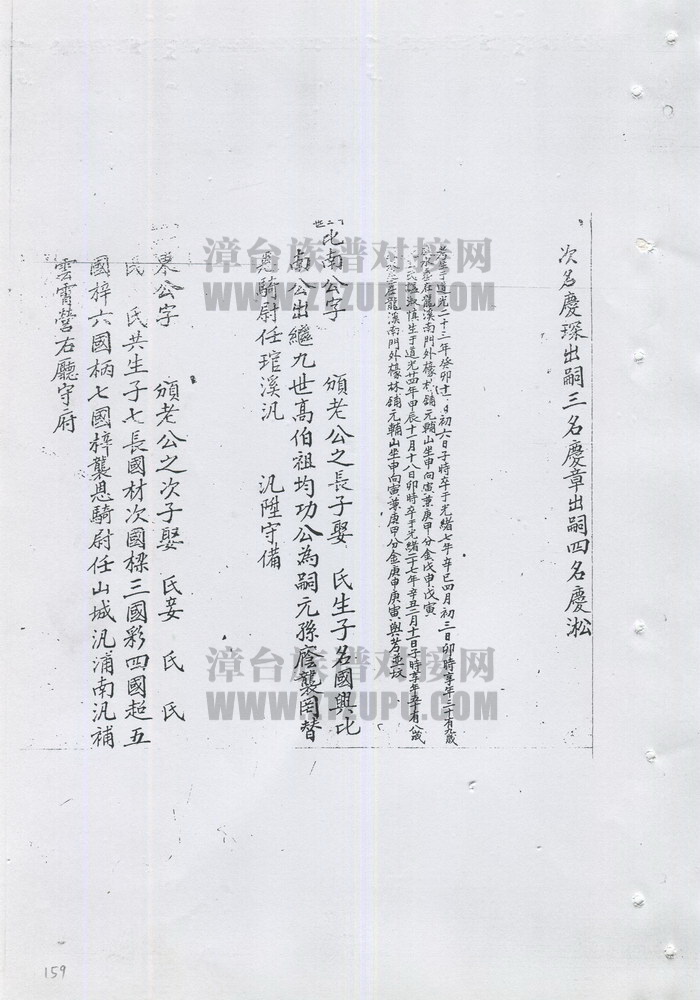 次名慶琛出嗣三名慶章出嗣四名慶淞
芳生于道光二十三年癸卯十一月初六日子時卒于光緒七年辛巳四月初三日卯時享年三十有九歲
水葬在龍溪南門外檺林舖元輔山坐申向寅兼庚甲分金戊申戊寅
氏謚淑慎生于道光廿四年甲辰十一月十八日卯時卒于光緒二十七年辛丑二月十日子時享年五十有八歲
葬在龍溪南門外檺林舖元輔山坐申向寅兼庚甲分金庚申庚寅與芳並坟
北南公字 頒老公之長子娶 氏生子名國興北
南公出繼九世高伯祖均功公為嗣元孫廕襲罔替
騎尉任琯溪汛 汛陞守備
東公字 頒老公之次子娶 氏妾 氏 氏
氏 氏共生子七長國材次國樑三國彩四國超五
國梓六國柄七國梓襲恩騎尉任山城汛浦南汛補
雲霄營右廳守府
漳台族谱对接网
WWW.ZTZUPU.COM
漳台族谱对接网
WWW.ZTZUPU.COM
159